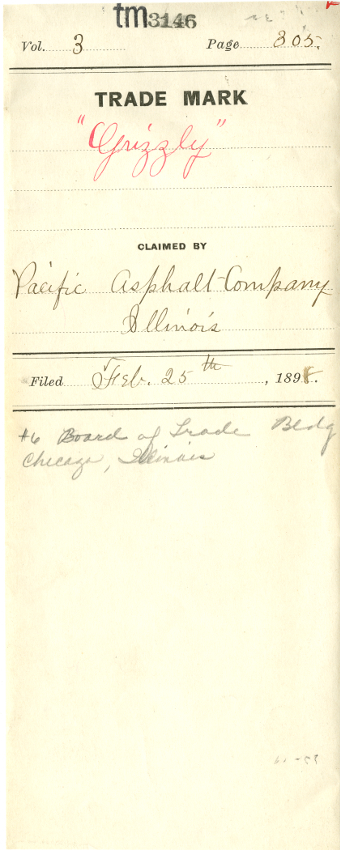 tm3146
Vol. 3 Page 305.
TRADE MARK
"Grizzly"
CLAIMED BY
Pacific Asphalt Company
Illinois
Filed Feb. 25th, 1898.
#6 Board of Trade Bldg
Chicago, Illinois